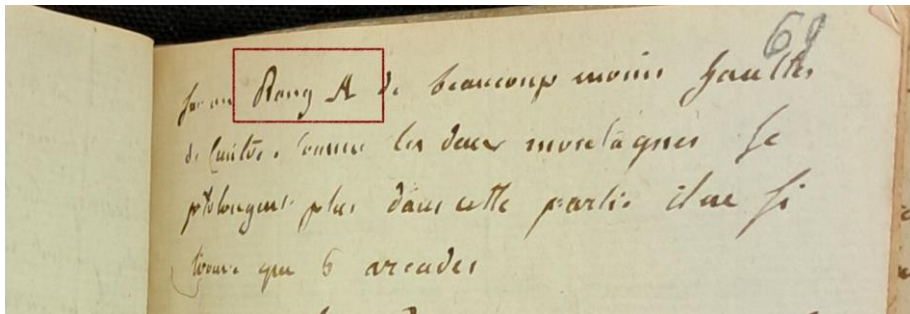 69
Rang A de beaucoup moins hautes
comme les deux montagnes se
prolongent plus dans cette partie il ne s'i
trouve que 6 arcades